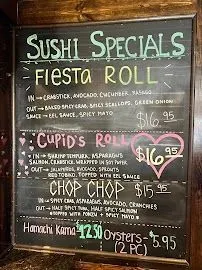 SUSHI SPECIALS
FIESTA ROLL
IN → CRABSTICK, AVOCADO, CUCUMBER, MASAGO
OUT → BAKED SPICY CRAB, SPICY SCALLOPS, GREEN ONION
SAUCE → EEL SAUCE, SPICY MAYO
$16.95
CUPID'S ROLL
IN → SHRIMP TEMPURA, ASPARAGUS
SALMON, CRABSTICK, WRAPPED IN SOY PAPER
$16.95
OUT → JALAPEÑOS, AVOCADO, SPROUTS
RED TOBIKO, TOPPED WITH EEL SAUCE
CHOP CHOP $15.95
IN → SPICY CRAB, ASPARAGUS, AVOCADO, CRUNCHIES
OUT → HALF SPICY TUNA, HALF SPICY SALMON
TOPPED WITH PONZU + SPICY MAYO
Hamachi Kama $12.50
Oysters - 5.95
(2 PC)